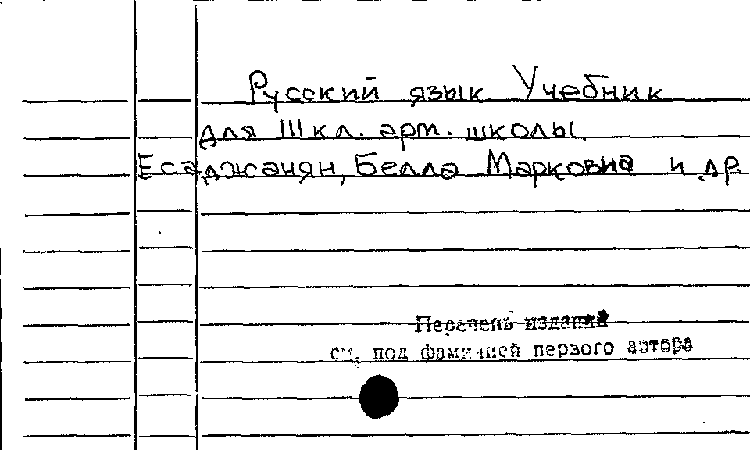 Русский язык Учебник
для III кл. арм. школы.
Есаджанян, Белла Марковна и др.
Перечень изданий
см. под фамилией первого автора